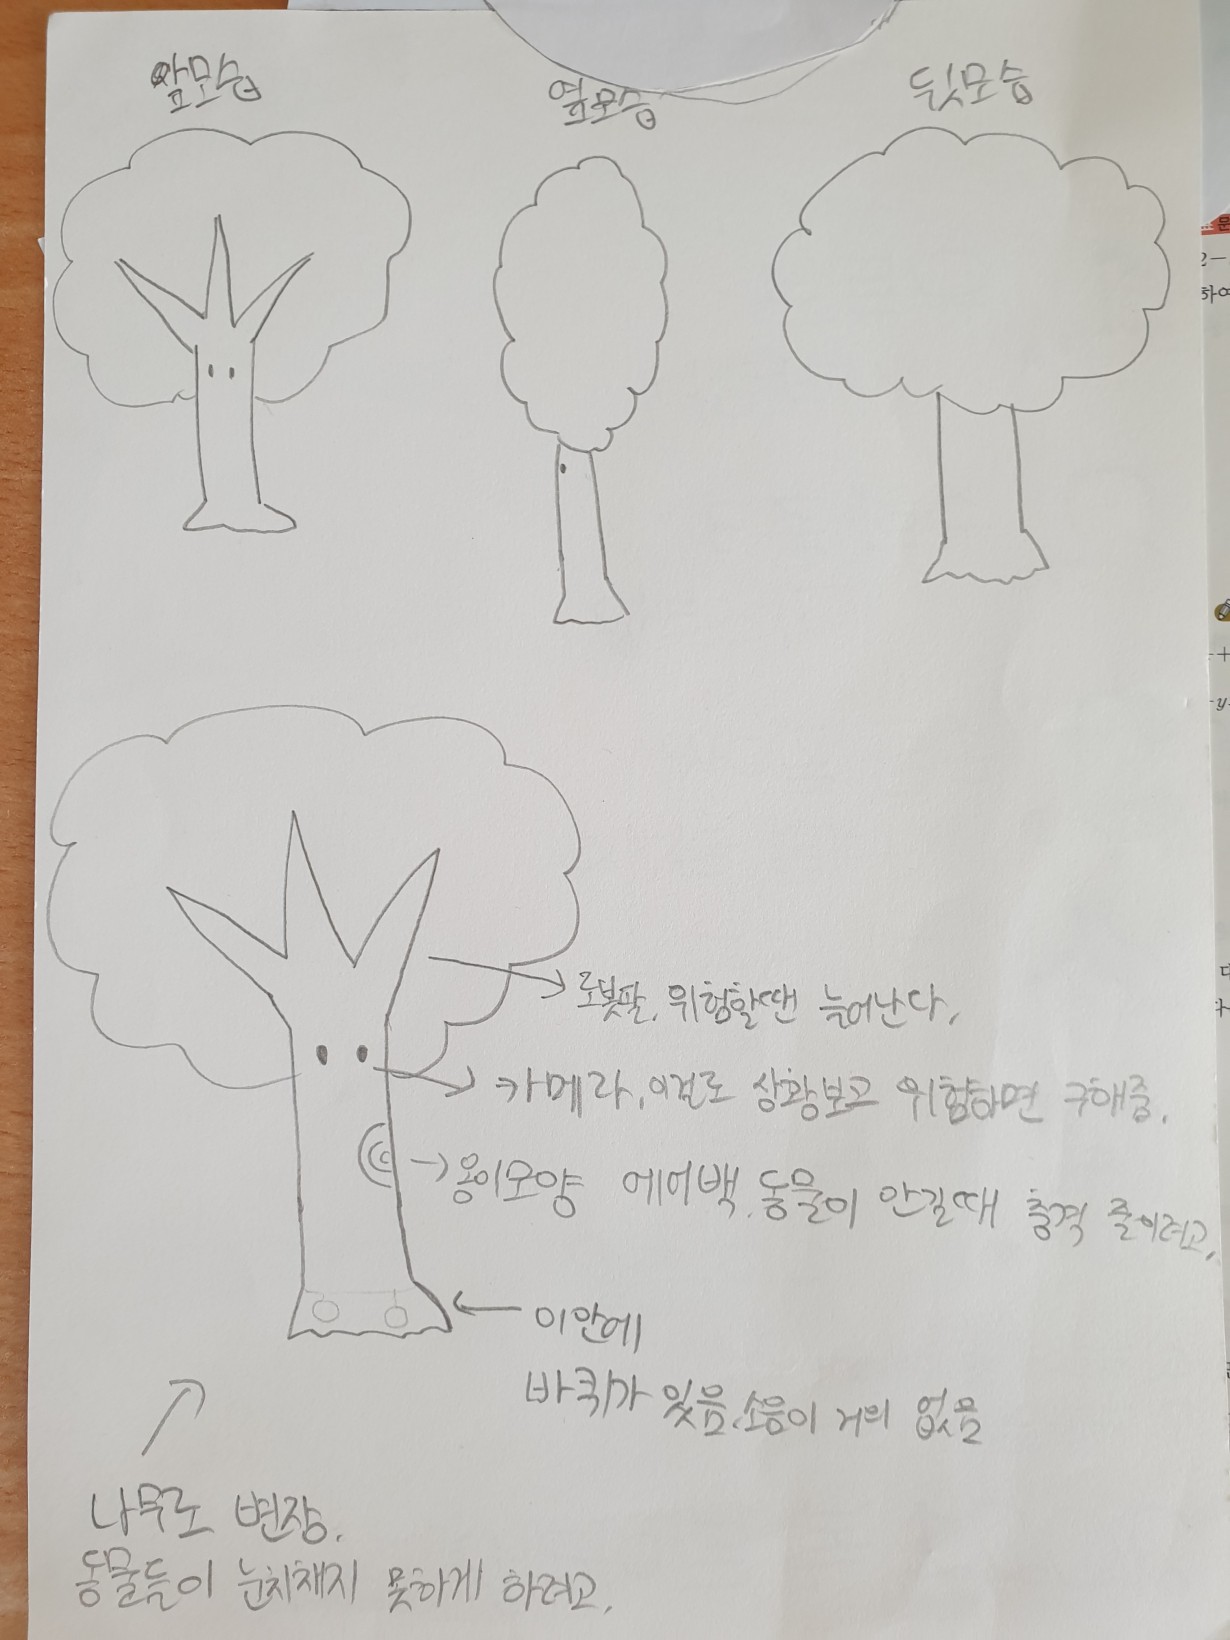 앞모습
옆모습
뒷모습
로봇팔. 위험할땐 늘어난다.
카메라. 이걸로 상황보고 위험하면 구해줌.
옹이모양 에어백. 동물이 안길때 충격 줄이려고.
이안에
바퀴가 있음. 소음이 거의 없음
나무로 변장.
동물들이 눈치채지 못하게 하려고.
문
2-
하여
-y